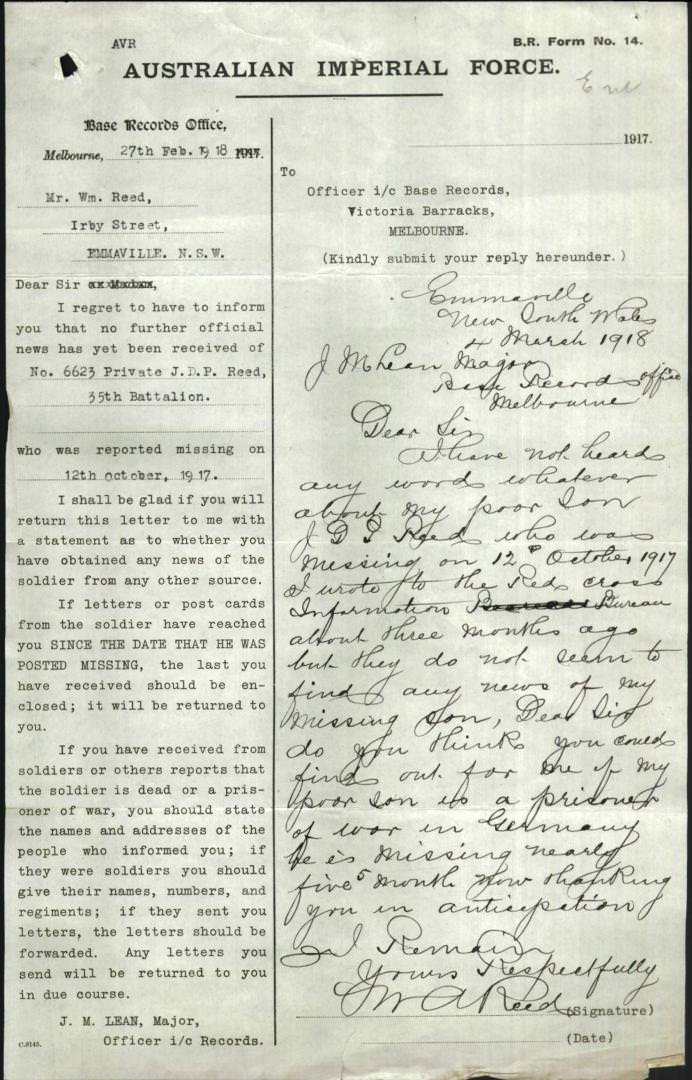 AVR
B.R. Form No. 14.
AUSTRALIAN IMPERIAL FORCE.
Base Records Office,
Melbourne, 27th Feb. 1918 1917.
Mr. Wm. Reed,
Irby Street,
EMMAVILLE. N.S.W.
Dear Sir or Madam,
I regret to have to inform
you that no further official
news has yet been received of
No. 6623 Private J.D.P. Reed,
35th Battalion.
who was reported missing on
12th october, 1917.
I shall be glad if you will
return this letter to me with
a statement as to whether you
have obtained any news of the
soldier from any other source.
If letters or post cards
from the soldier have reached
you SINCE THE DATE THAT HE WAS
POSTED MISSING, the last you
have received should be en-
closed; it will be returned to
you.
If you have received from
soldiers or others reports that
the soldier is dead or a pris-
oner of war, you should state
the names and addresses of the
people who informed you; if
they were soldiers you should
give their names, numbers, and
regiments; if they sent you
letters, the letters should be
forwarded. Any letters you
send will be returned to you
in due course.
J. M. LEAN, Major,
Officer i/c Records.
C.9145.
1917.
To
Officer i/c Base Records,
Victoria Barracks,
MELBOURNE.
(Kindly submit your reply hereunder.)
Emmaville
New South Wales
4 March 1918
J M Lean Major
Base Records office
Melbourne
Dear Sir
I have not heard
any word whatever
about my poor son
J D P Reed who was
missing on 12th October 1917
I wrote to the Red cross
Information Bureau
about three months ago
but they do not seem to
find any news of my
missing son, Dear Sir
do you think you could
find out for me if my
poor son is a prisoner
of war in Germany
he is missing nearly
five months now thanking
you in anticipation
I Remain
Yours Respectfully
Reed (Signature)
(Date)